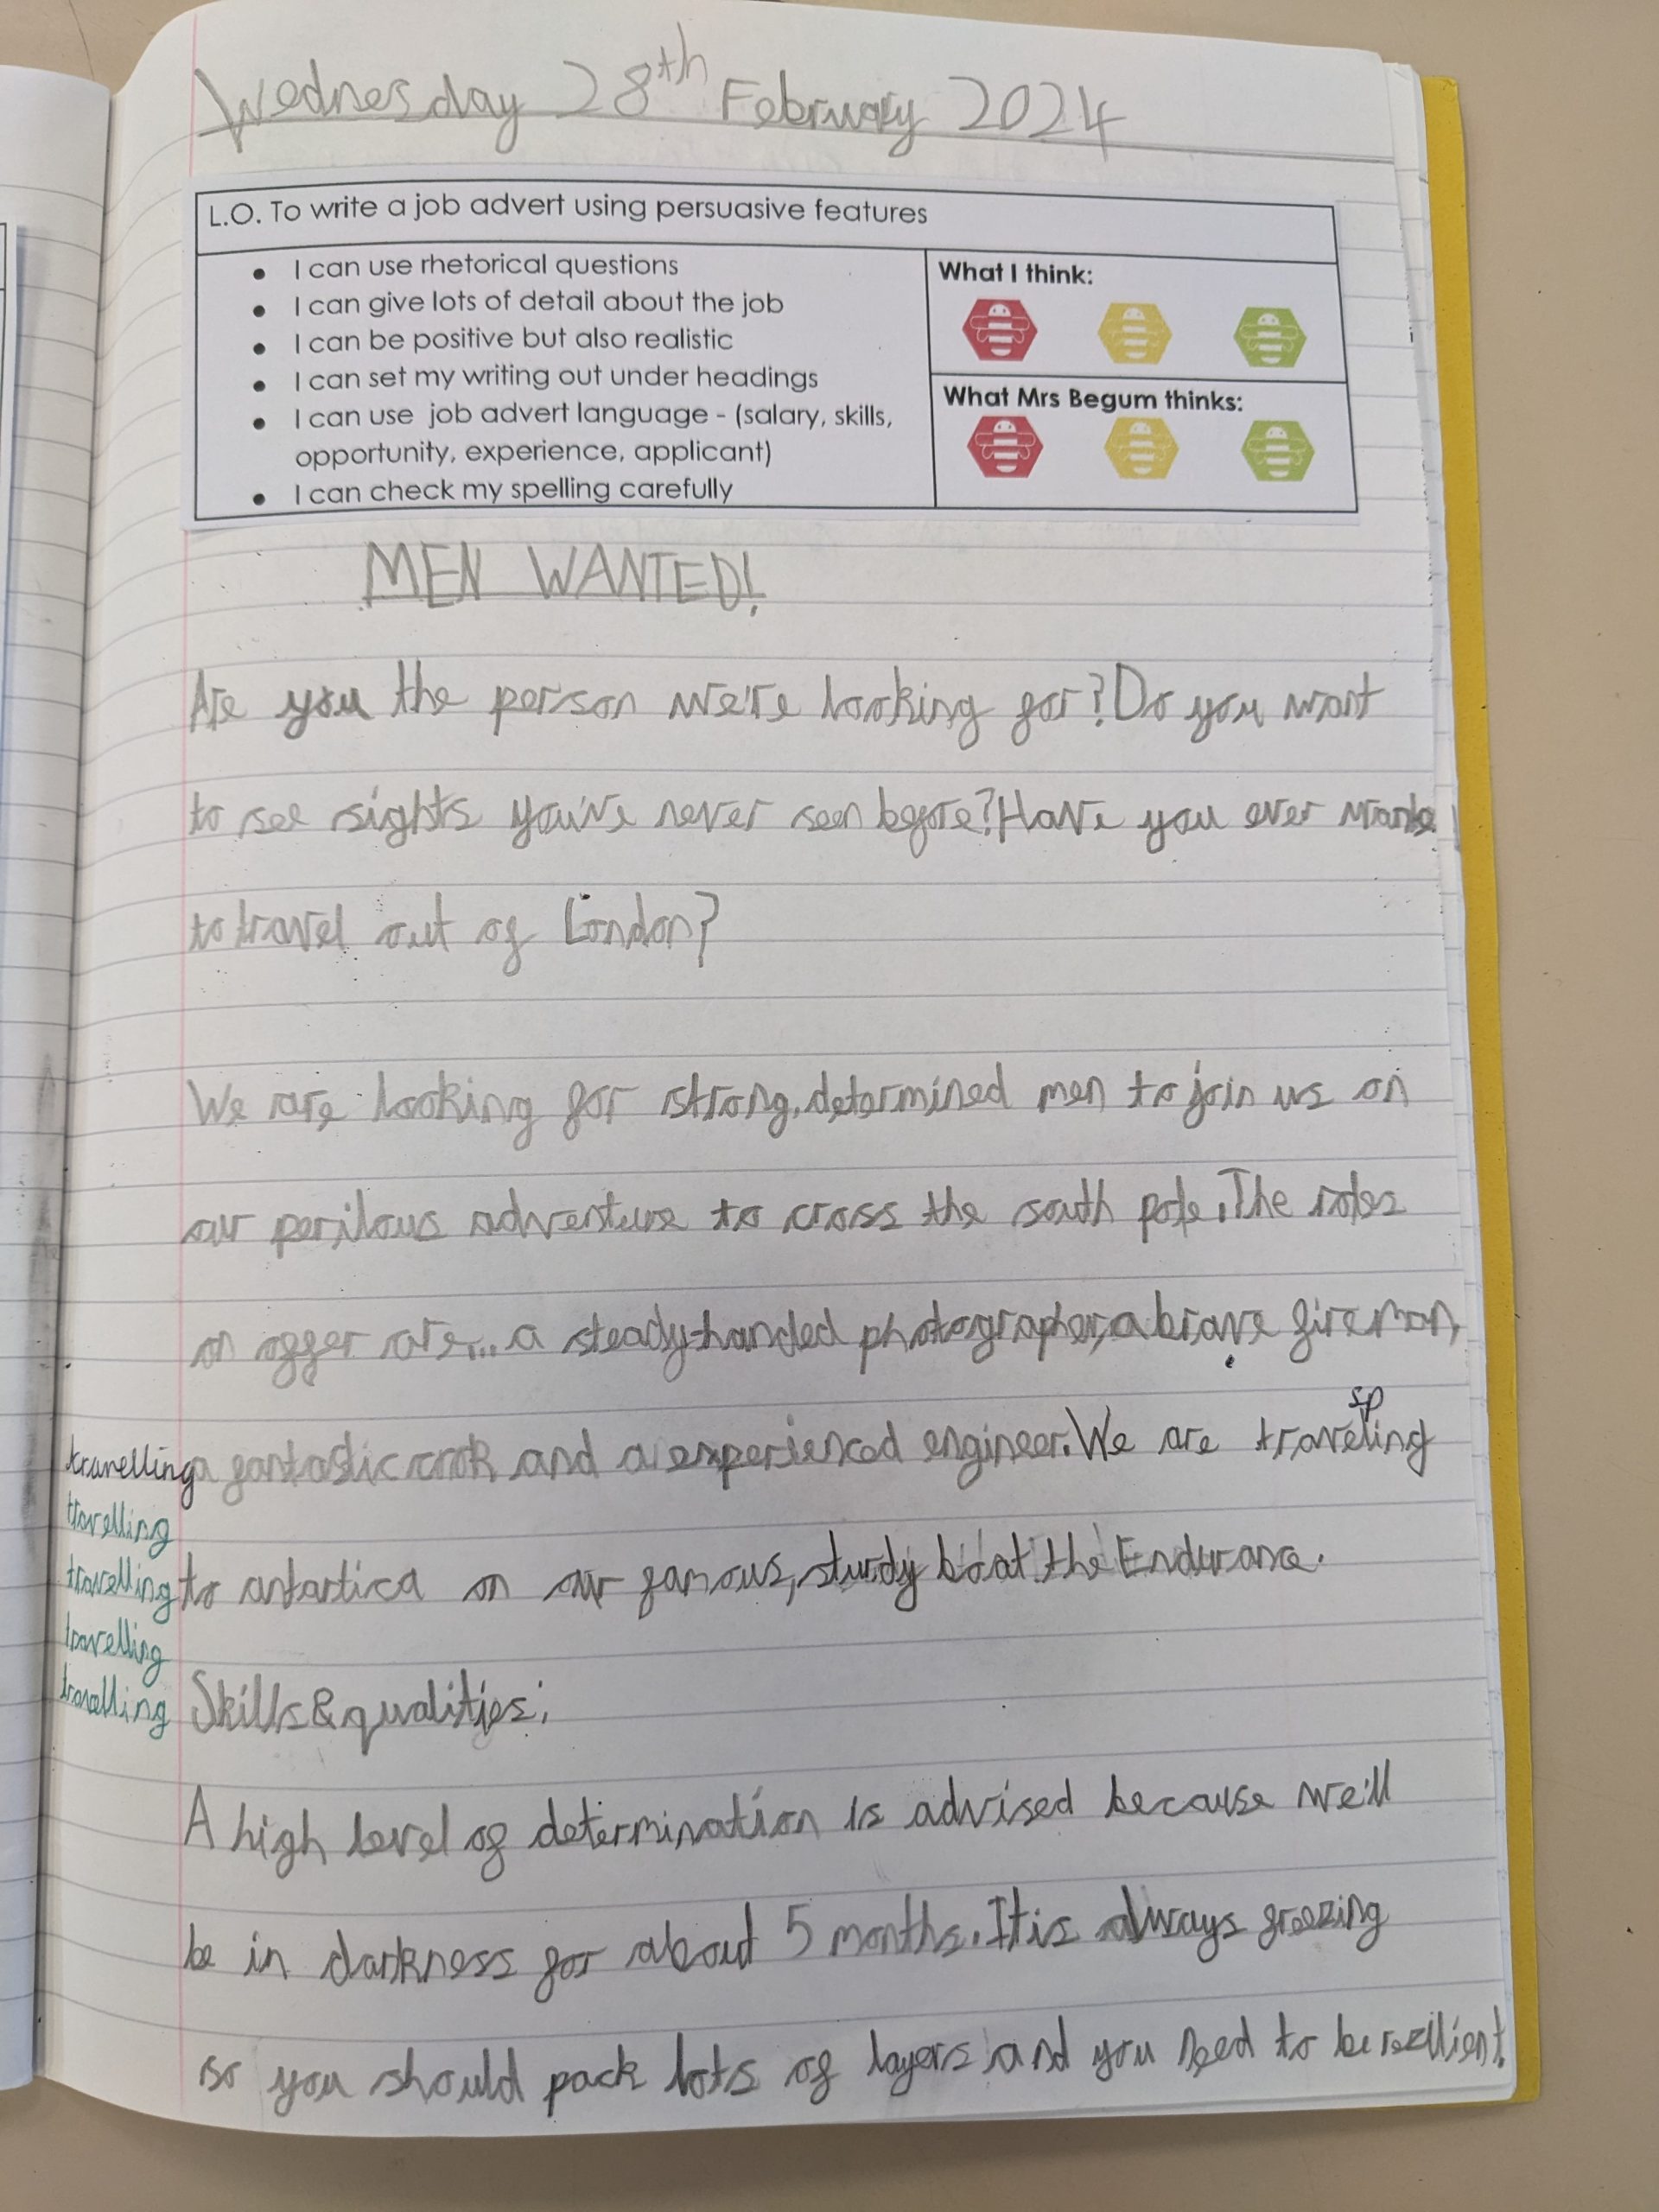 Wednesday 28th February 2024
L.O. To write a job advert using persuasive features
• I can use rhetorical questions
• I can give lots of detail about the job
• I can be positive but also realistic
• I can set my writing out under headings
• I can use job advert language - (salary, skills,
opportunity, experience, applicant)
• I can check my spelling carefully
What I think:
What Mrs Begum thinks:
MEN WANTED!
Are you the person we're looking for? Do you want
to see sights you've never seen before? Have you ever
to travel out of London?
We are looking for strong, determined men to join us on
our perilous adventure to cross the south pole. The roles
on offer are... a steady-handed photographer, a brave fireman,
sp
a fantastic cook and a experienced engineer. We are traveling
travelling
travelling
travelling
travelling
travelling
to antartica on our famous, sturdy boat the Endurance.
Skills & qualities:
A high level of determination is advised because we'll
be in darkness for about 5 months. It is always freezing
so you should pack lots of layers and you need to be rezilient.